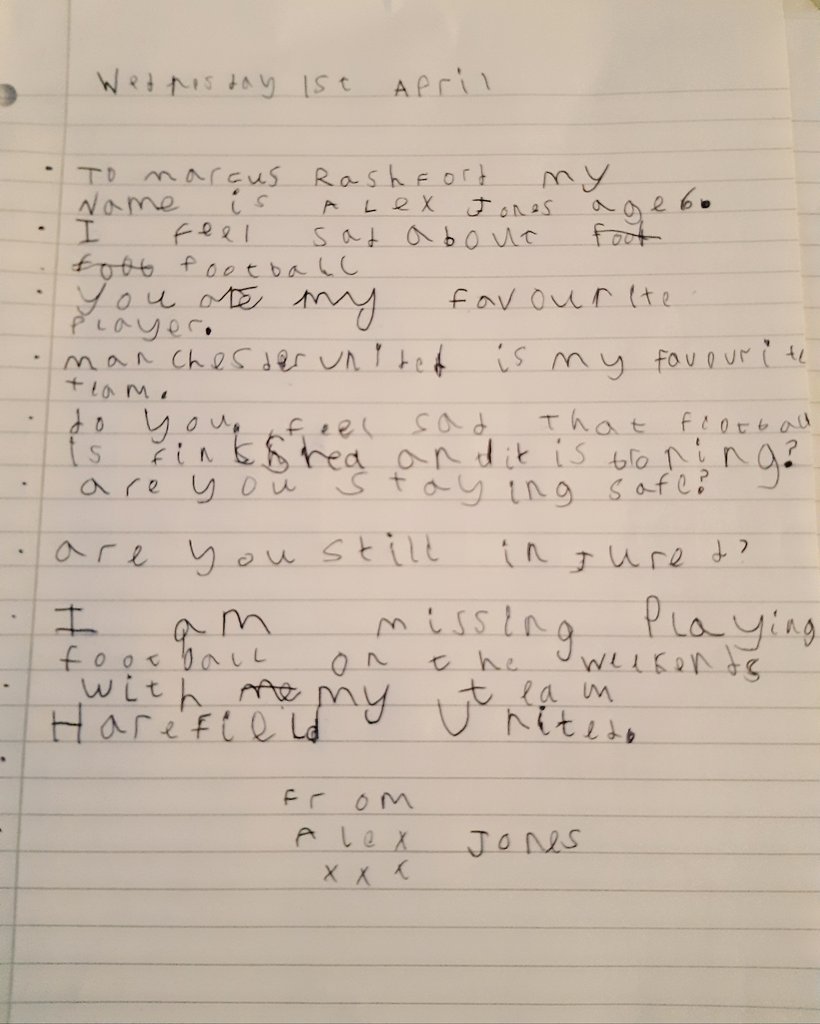 Wednesday 1st April
To marcus Rashford my
Name is Alex Jones age 6.
I feel sad about foot
foot football
you are my favourite
player.
manchesder united is my favourite
team.
do you feel sad that football
is finished and it is broning?
are you staying safe?
are you still injured?
I am missing Playing
football on the weekends
with me my team
Harefield United.
From
Alex Jones
x x x